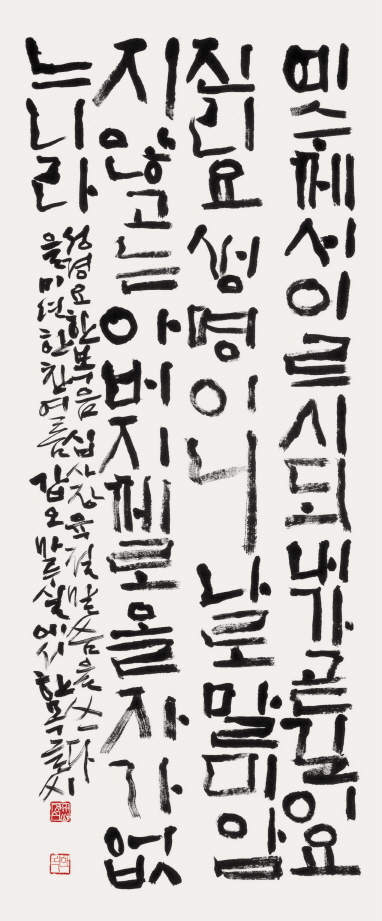 예수께서이르시되내가곧길이요
진리요생명이니나로말미암
지않고는아버지께로올자가없
느니라
성경요한복음십사장육절말씀을쓰다
을미년한창여름